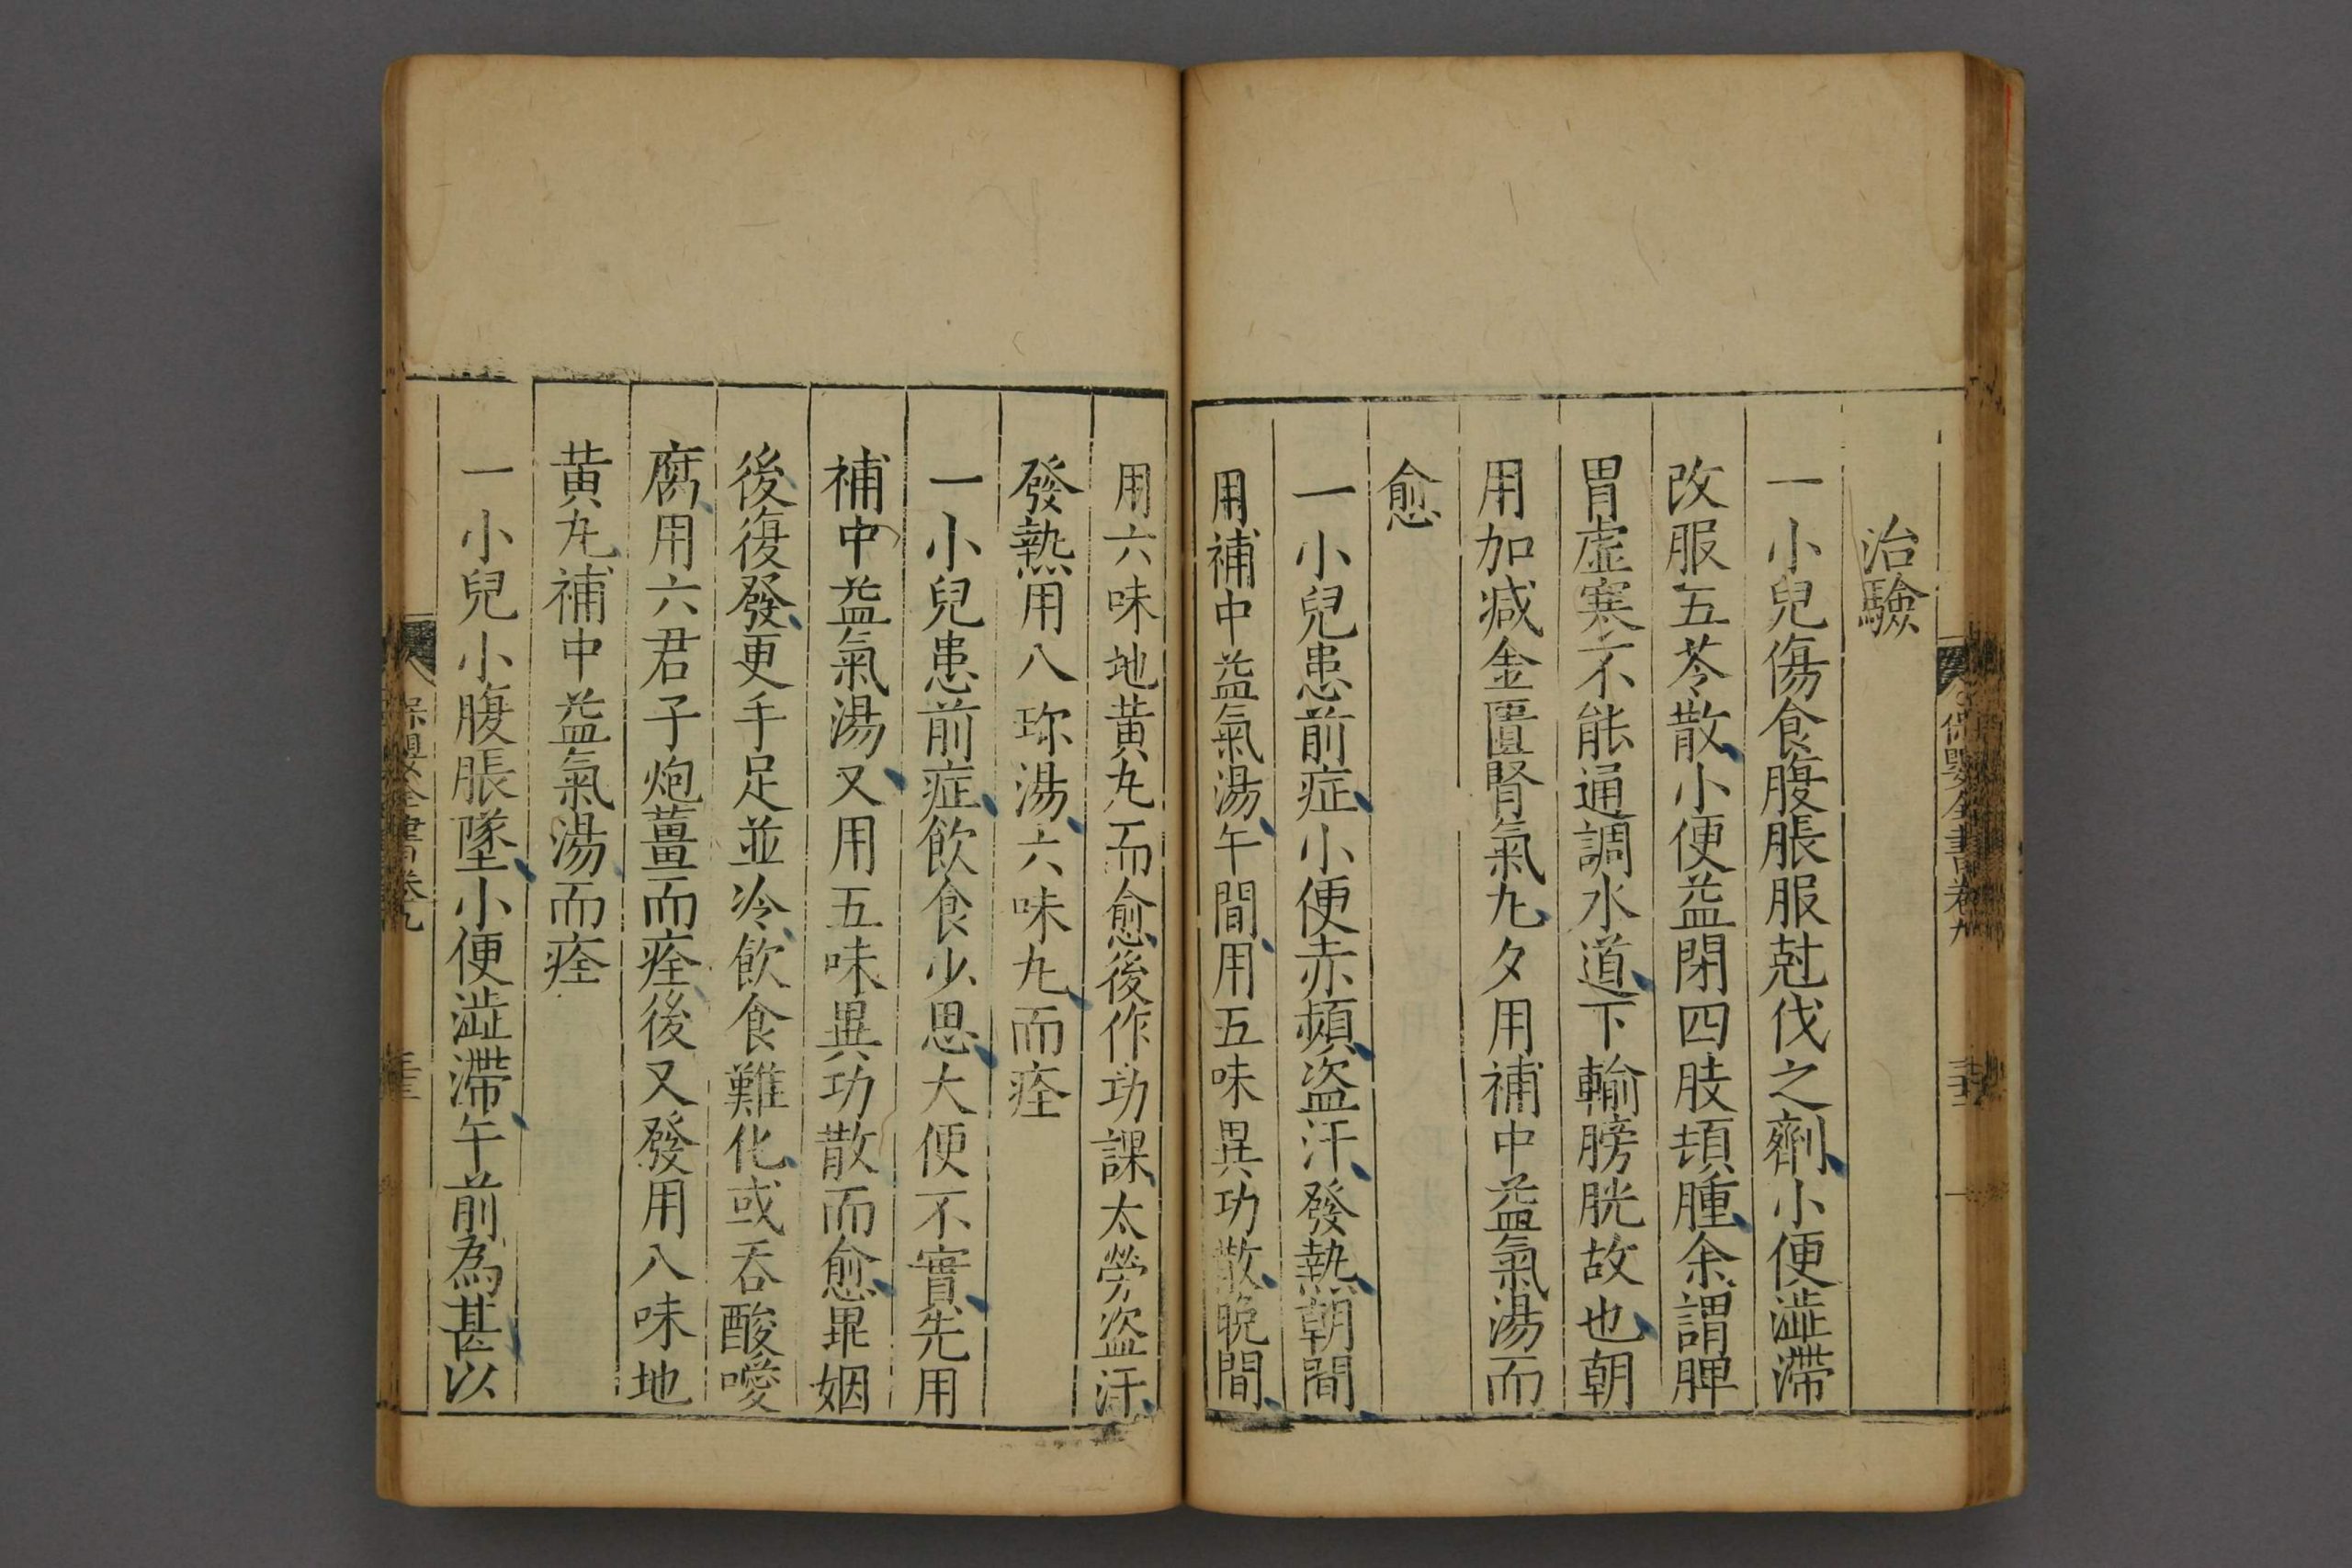 治驗
一小兒傷食腹脹服尅伐之劑小便澁滯
改服五苓散小便益閉四肢頓腫余謂脾
胃虛寒不能通調水道下輸膀胱故也朝
用加减金匱腎氣丸夕用補中益氣湯而
愈
一小兒患前症小便赤頻盗汗發熱朝間
用補中益氣湯午間用五味異功散晚間
用六味地黄丸而愈後作功課太勞盗汗
發熱用八珎湯六味丸而痊
一小兒患前症飲食少思大便不實先用
補中益氣湯又用五味異功散而愈畢姻
後復發更手足並冷飲食難化或吞酸噯
腐用六君子炮薑而痊後又發用八味地
黄丸補中益氣湯而痊
一小兒小腹脹墜小便澁滯午前為甚以
保嬰全書卷九
保嬰全書卷九